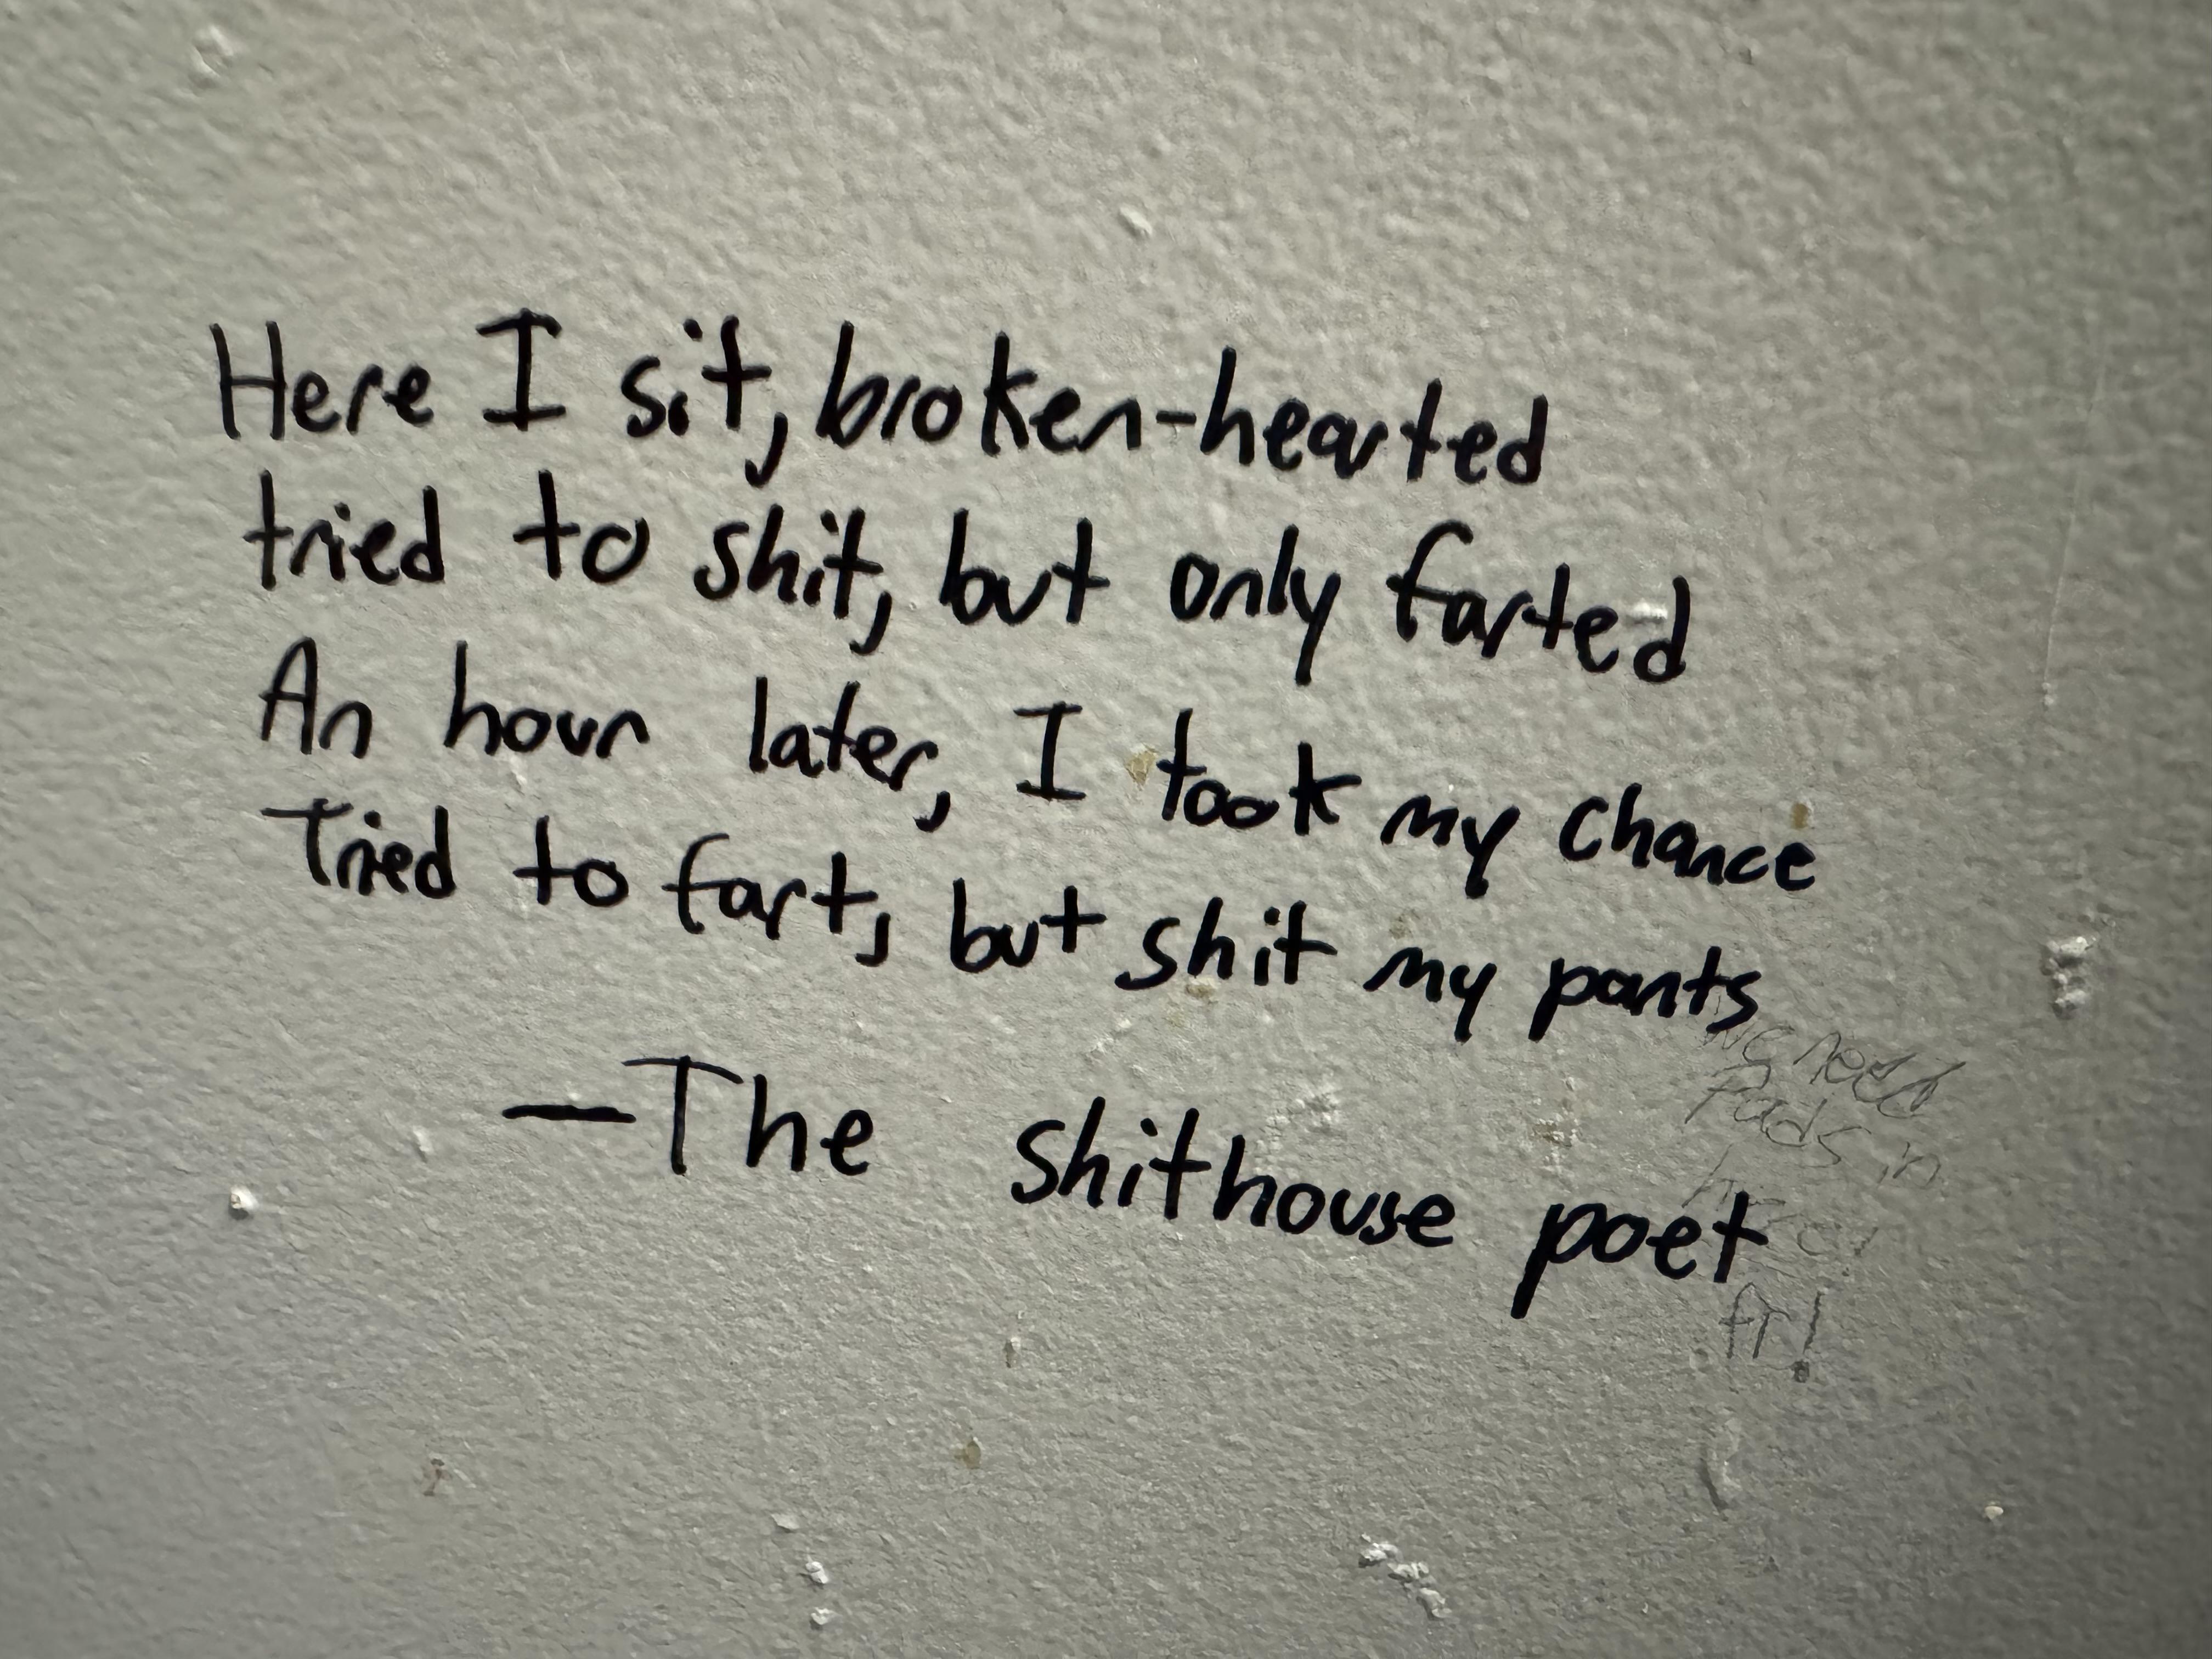 Here I sit, broken-hearted
tried to shit, but only farted
An hour later, I took my chance
Tried to fart, but shit my pants
—The shithouse poet
we need
Pads in
fr!